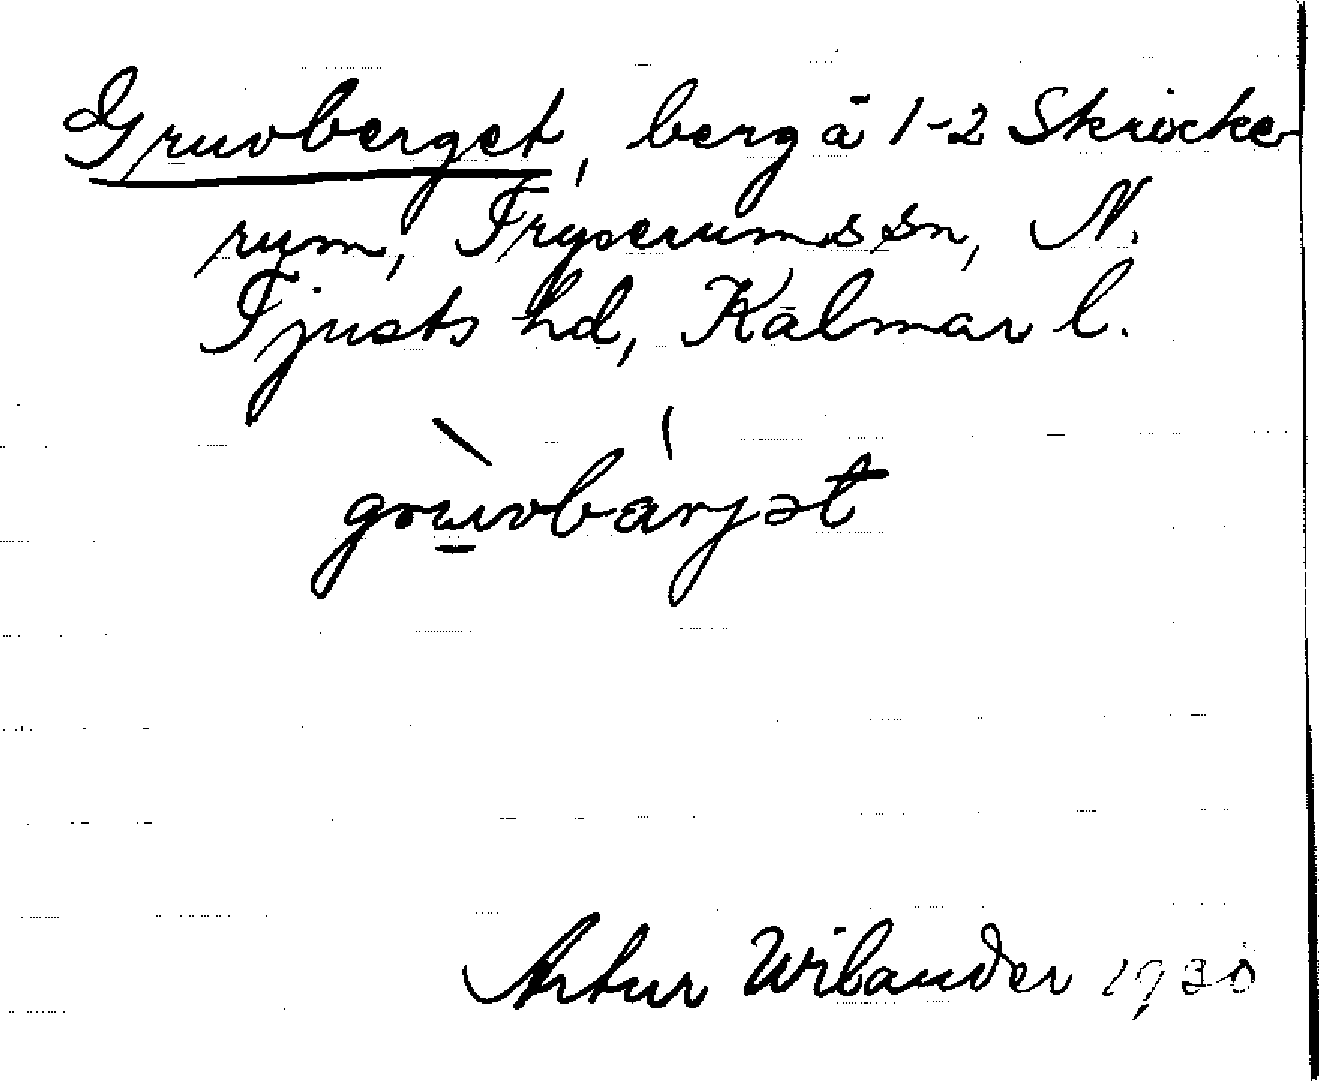 Gruvberget, berg å 1-2 Skröcke-
rum, Tryserums sn, N.
Tjusts hd, Kalmar l.
grùvbárjət
Artur Wilander 1930